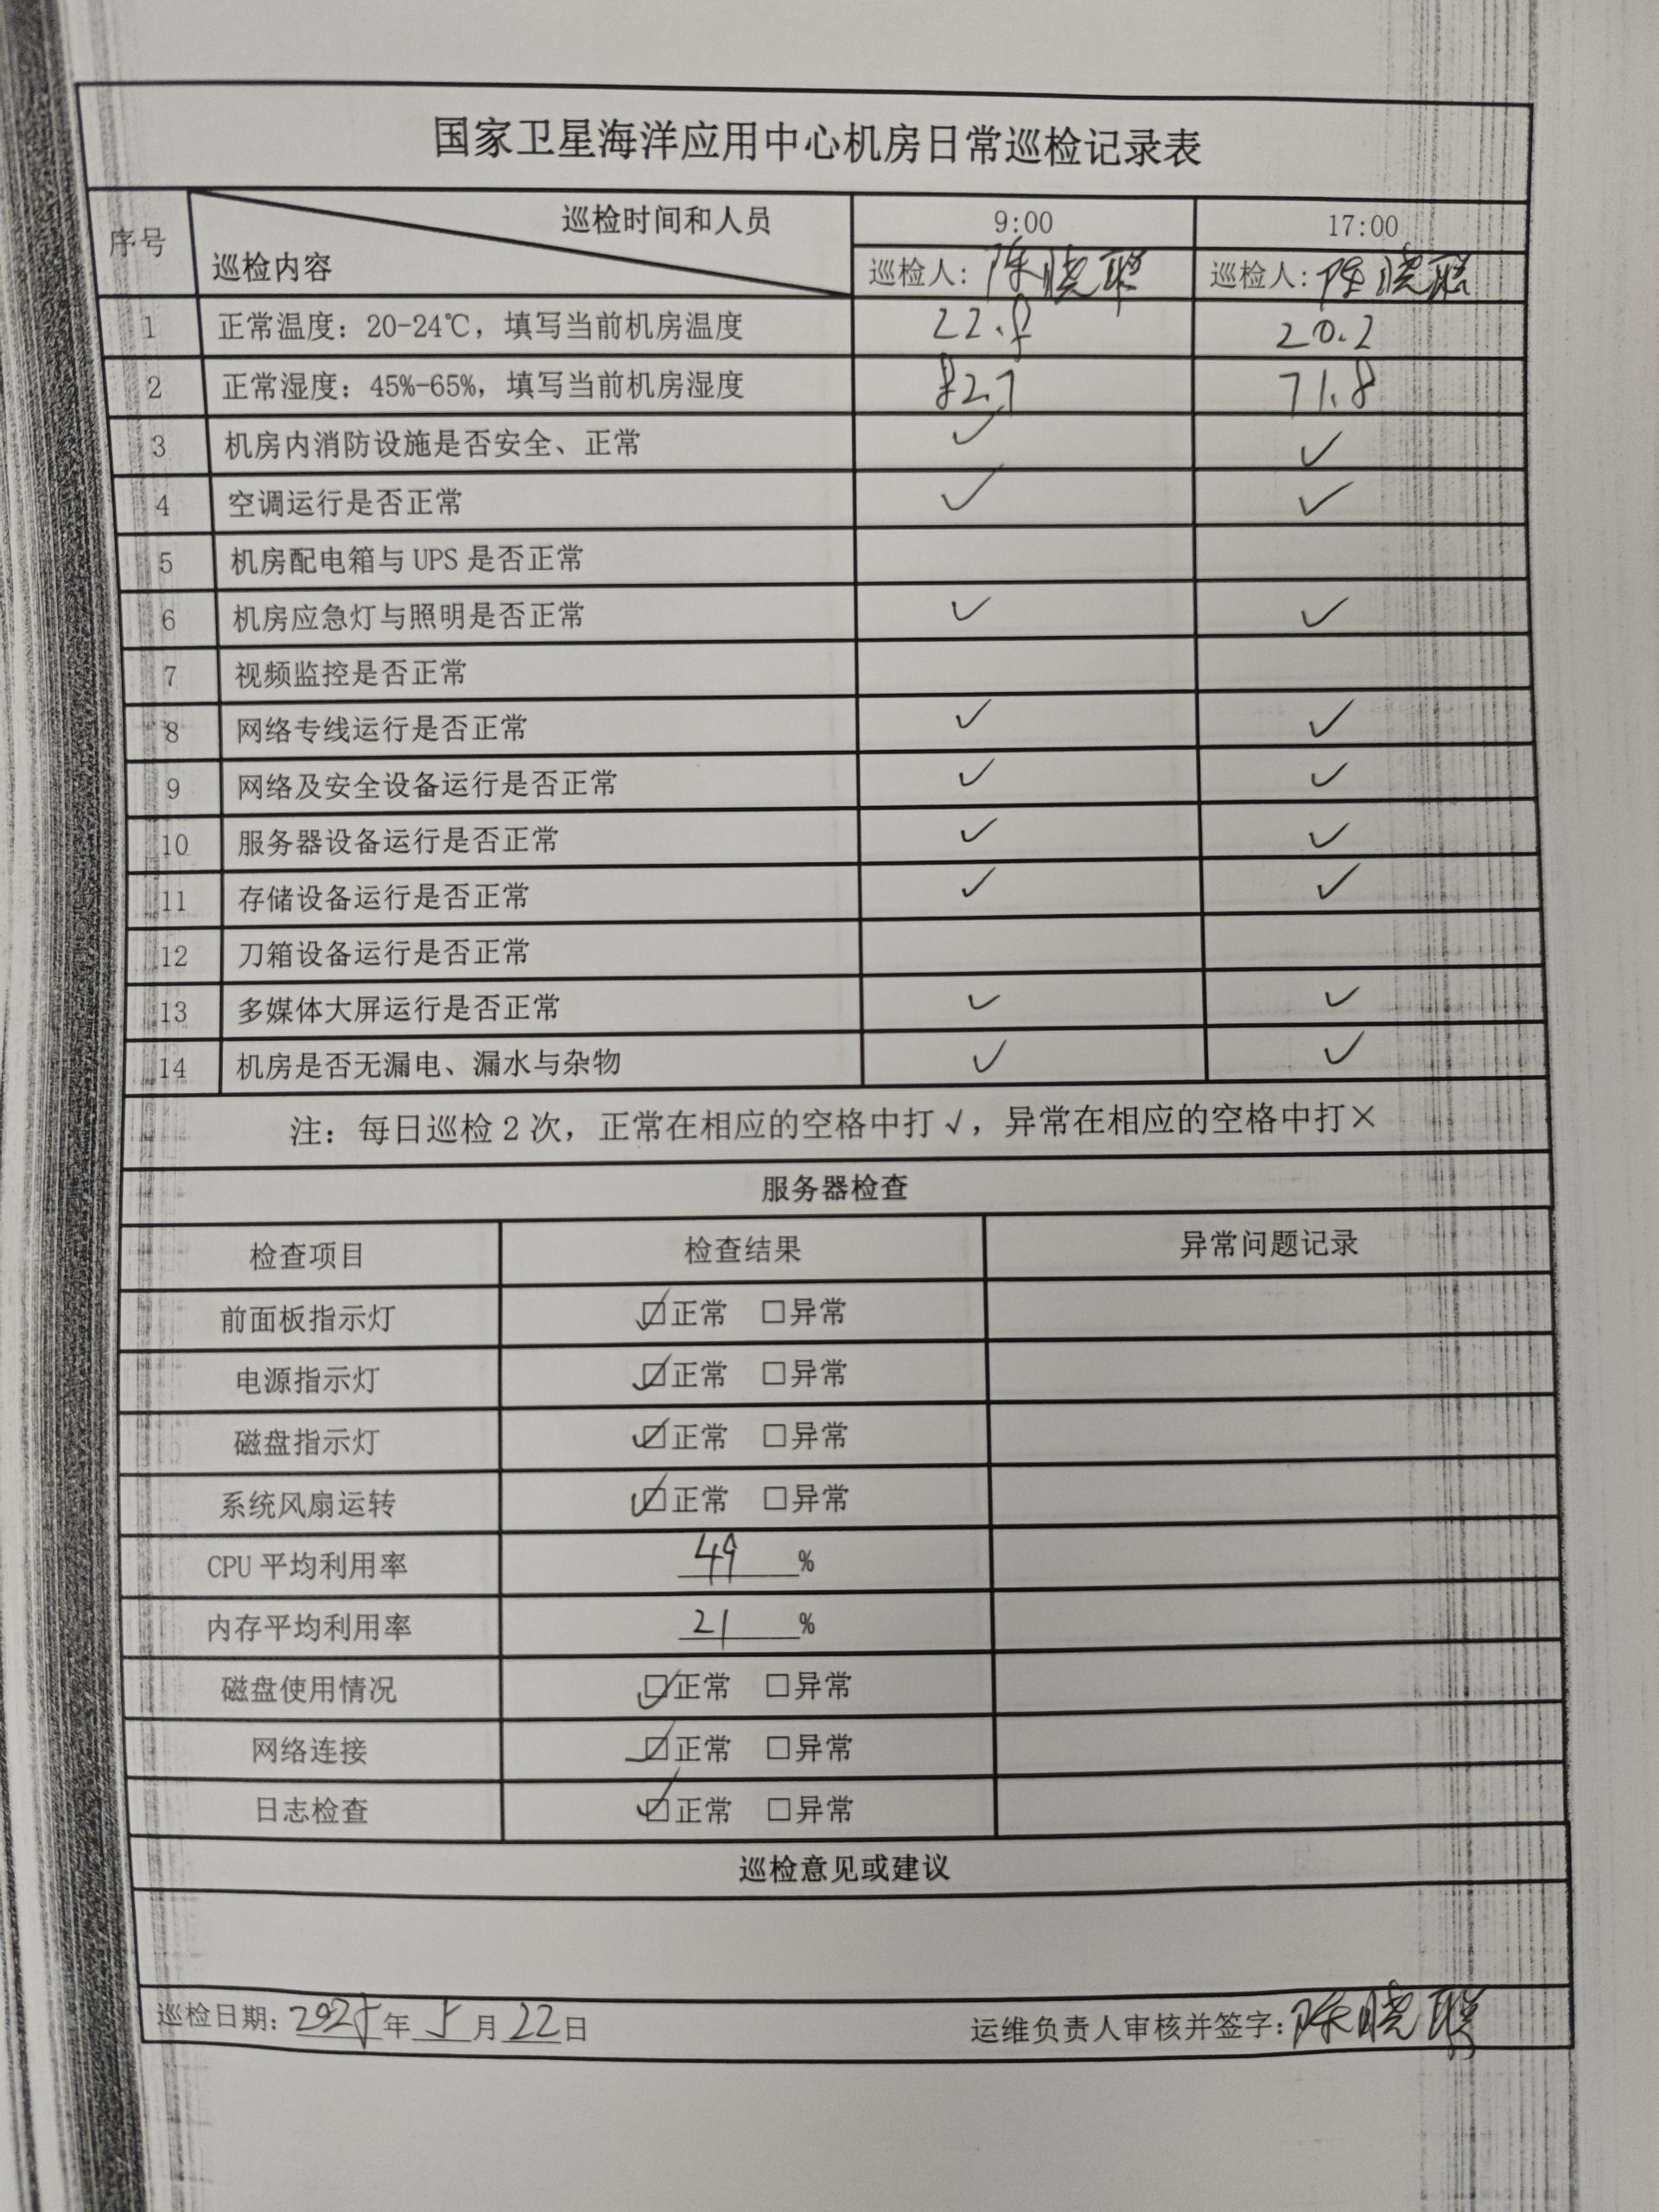 国家卫星海洋应用中心机房日常巡检记录表
序号 巡检时间和人员 9:00 17:00
巡检内容 巡检人: 陈晓联 巡检人: 陈晓联
1 正常温度：20-24℃，填写当前机房温度 22.8 20.2
2 正常湿度：45%-65%，填写当前机房湿度 82.7 71.8
3 机房内消防设施是否安全、正常 ✓ ✓
4 空调运行是否正常 ✓ ✓
5 机房配电箱与 UPS 是否正常
6 机房应急灯与照明是否正常 ✓ ✓
7 视频监控是否正常
8 网络专线运行是否正常 ✓ ✓
9 网络及安全设备运行是否正常 ✓ ✓
10 服务器设备运行是否正常 ✓ ✓
11 存储设备运行是否正常 ✓ ✓
12 刀箱设备运行是否正常
13 多媒体大屏运行是否正常 ✓ ✓
14 机房是否无漏电、漏水与杂物 ✓ ✓
注：每日巡检 2 次，正常在相应的空格中打√，异常在相应的空格中打×
服务器检查
检查项目 检查结果 异常问题记录
前面板指示灯 ☑正常 □异常
电源指示灯 ☑正常 □异常
磁盘指示灯 ☑正常 □异常
系统风扇运转 ☑正常 □异常
CPU 平均利用率 49 %
内存平均利用率 21 %
磁盘使用情况 ☑正常 □异常
网络连接 ☑正常 □异常
日志检查 ☑正常 □异常
巡检意见或建议
巡检日期: 2025年 5 月 22 日 运维负责人审核并签字: 陈晓联